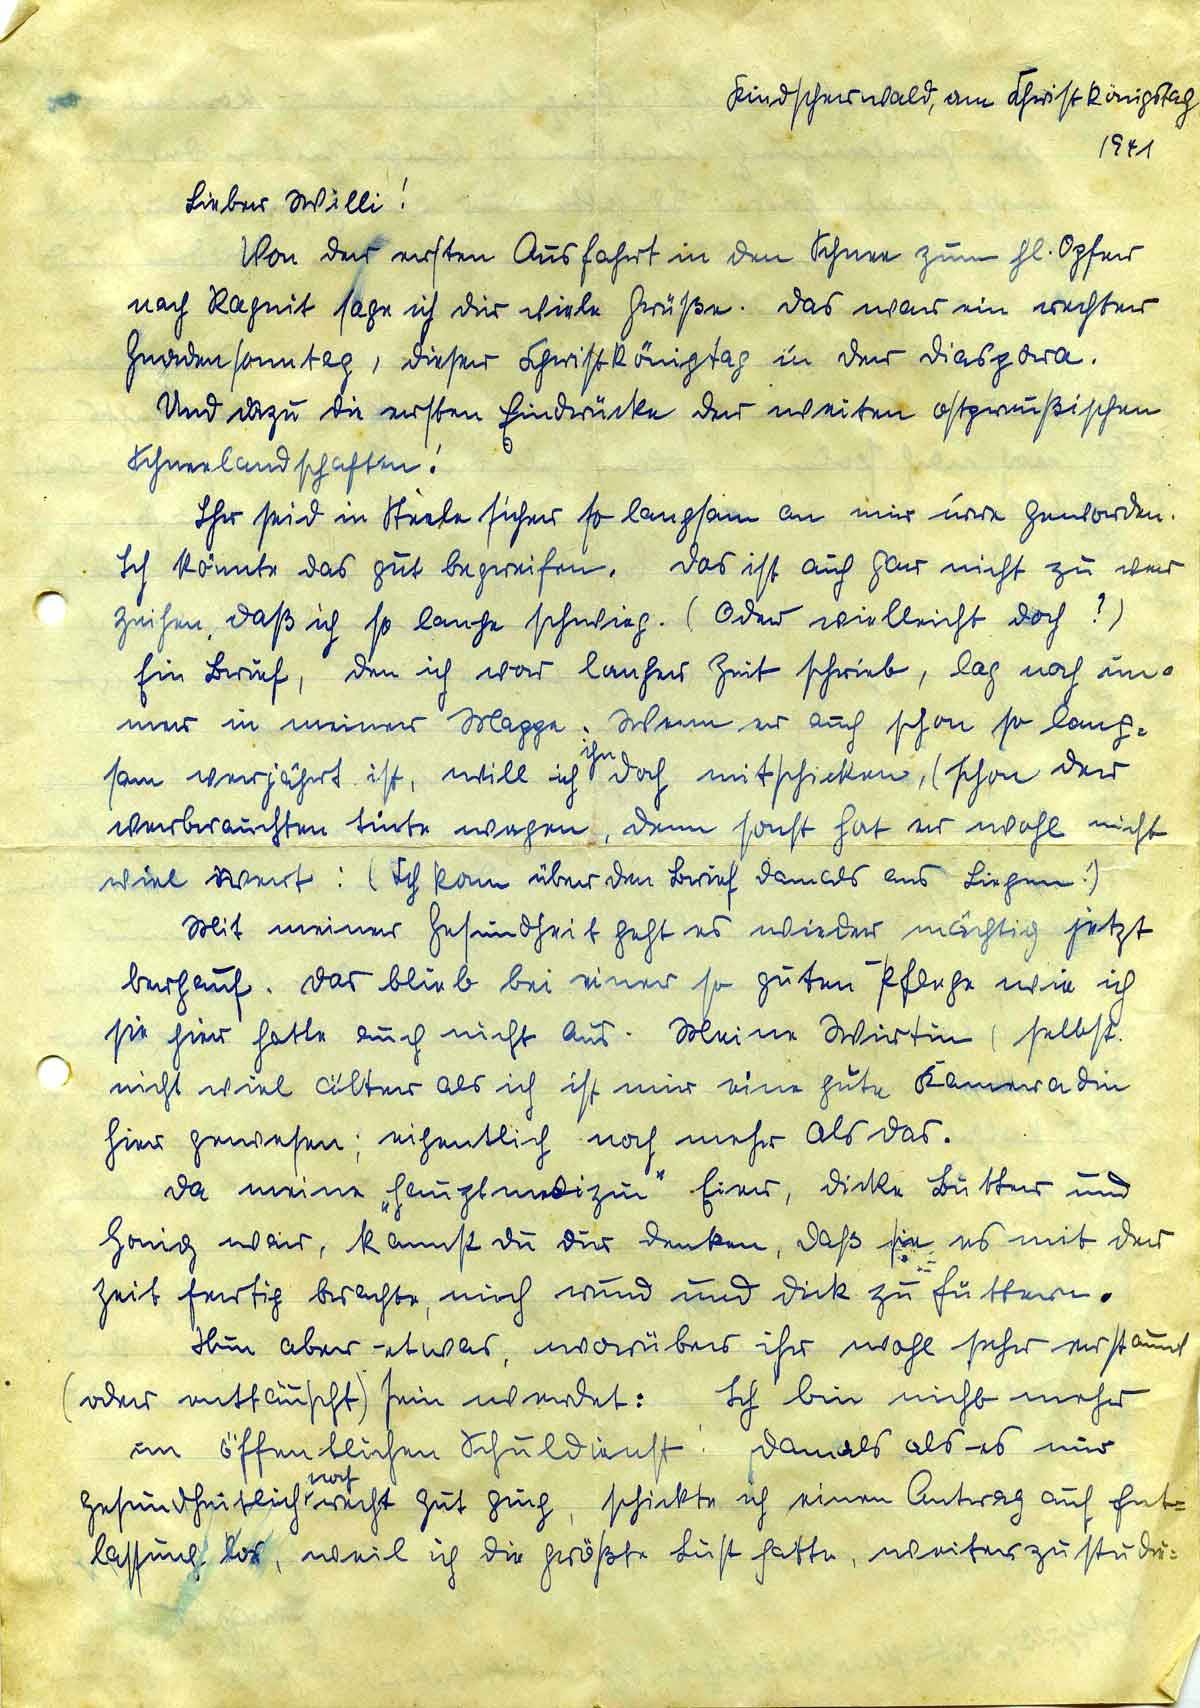 Kindschenwald, am Christkönigstag
1941
Lieber Willi!
Von der ersten Ausfahrt in den Schnee zum hl. Opfer
nach Ragnit sage ich dir viele Grüße. Das war ein rechter
Gnadensonntag, dieser Christkönigtag in der Diaspora.
Und dazu die ersten Eindrücke der weiten ostpreußischen
Schneelandschaften!
Ihr seid in Steele sicher so langsam an mir irre geworden.
Ich könnte das gut begreifen. Das ist auch gar nicht zu ver
zeihen, daß ich so lange schwieg. (Oder vielleicht doch?)
Ein Brief, den ich vor langer Zeit schrieb, lag noch im-
mer in meiner Mappe. Wenn er auch schon so lang=
sam verjährt ist, will ich ihn doch mitschicken, (schon der
verbrauchten Tinte wegen, denn sonst hat er wohl nicht
viel Wert: (Ich kam über den Brief damals ans Liegen!)
Mit meiner Gesundheit geht es wieder mächtig jetzt
bergauf. Das blieb bei einer so guten Pflege wie ich
sie hier hatte auch nicht aus. Meine Wirtin, selbst
nicht viel älter als ich ist mir eine gute Kameradin
hier gewesen; eigentlich noch mehr als das.
Da meine „Hauptmedizin" Eier, dicke Butter und
Honig war, kannst du dir denken, daß sie es mit der
Zeit fertig brachte, mich rund und dick zu füttern.
Nun aber etwas, worüber ihr wohl sehr erstaunt
(oder enttäuscht) sein werdet: Ich bin nicht mehr
im öffentlichen Schuldienst! Damals als es mir
gesundheitlich noch recht gut ging, schickte ich einen Antrag auf Ent=
lassung los, weil ich die größte Lust hatte, weiterzustudie=